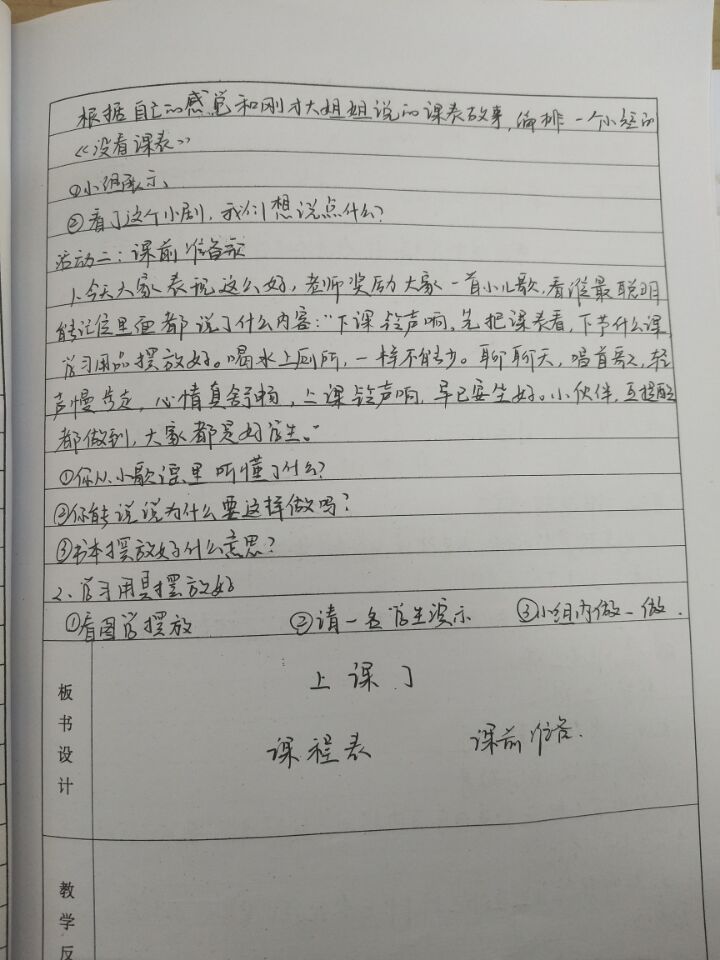 根据自己的感觉和刚才大姐姐说的课表故事,编排一个小短的
《没看课表》
①小组展示、
②看了这个小剧,我们想说点什么?
活动二:课前准备
1、今天大家表现这么好,老师奖励大家一首小儿歌,看谁最聪明
能记住里面都说了什么内容:"下课铃声响,先把课表看,下节什么课,
学习用品摆放好。喝水上厕所,一样不能少。聊聊天,唱首歌,轻
声慢步走,心情真舒畅,上课铃声响,早已安坐好。小伙伴,互提醒
都做到,大家都是好学生。"
①你从小歌谣里听懂了什么?
②你能说说为什么要这样做吗?
③书本摆放好什么意思?
2、学习用具摆放好
①看图学摆放 ②请一名学生演示 ③小组内做一做.
板书设计
上课了
课程表 课前准备.
教学反